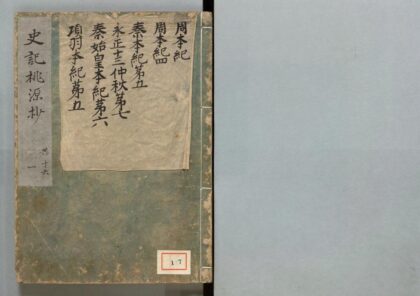 周本紀
周本紀四
秦本紀第五
永正十三仲秋第七
秦始皇本紀第六
項羽本紀第五
史記桃源抄
共十六
一